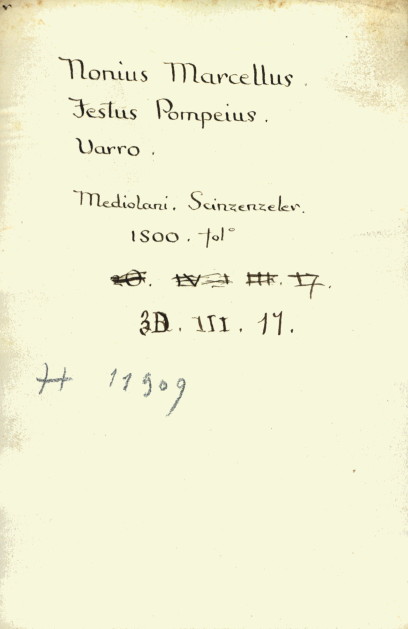 Nonius Marcellus.
Festus Pompeius.
Varro.
Mediolani. Scinzenzeler.
1500. fol°
III. 17.
3D. III. 17.
H 11909